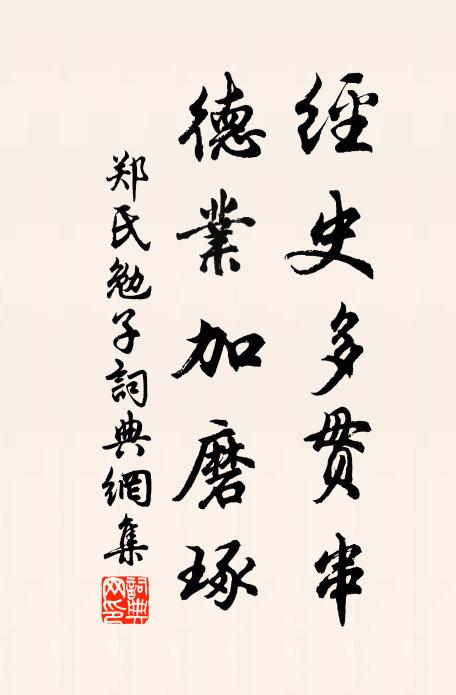 經史多貫串
德業加磨琢
郑氏勉子詞典網集
詞典
网印